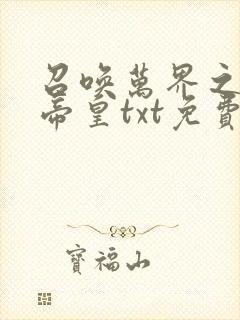 召喚萬界之
帝皇txt免費
寶福山